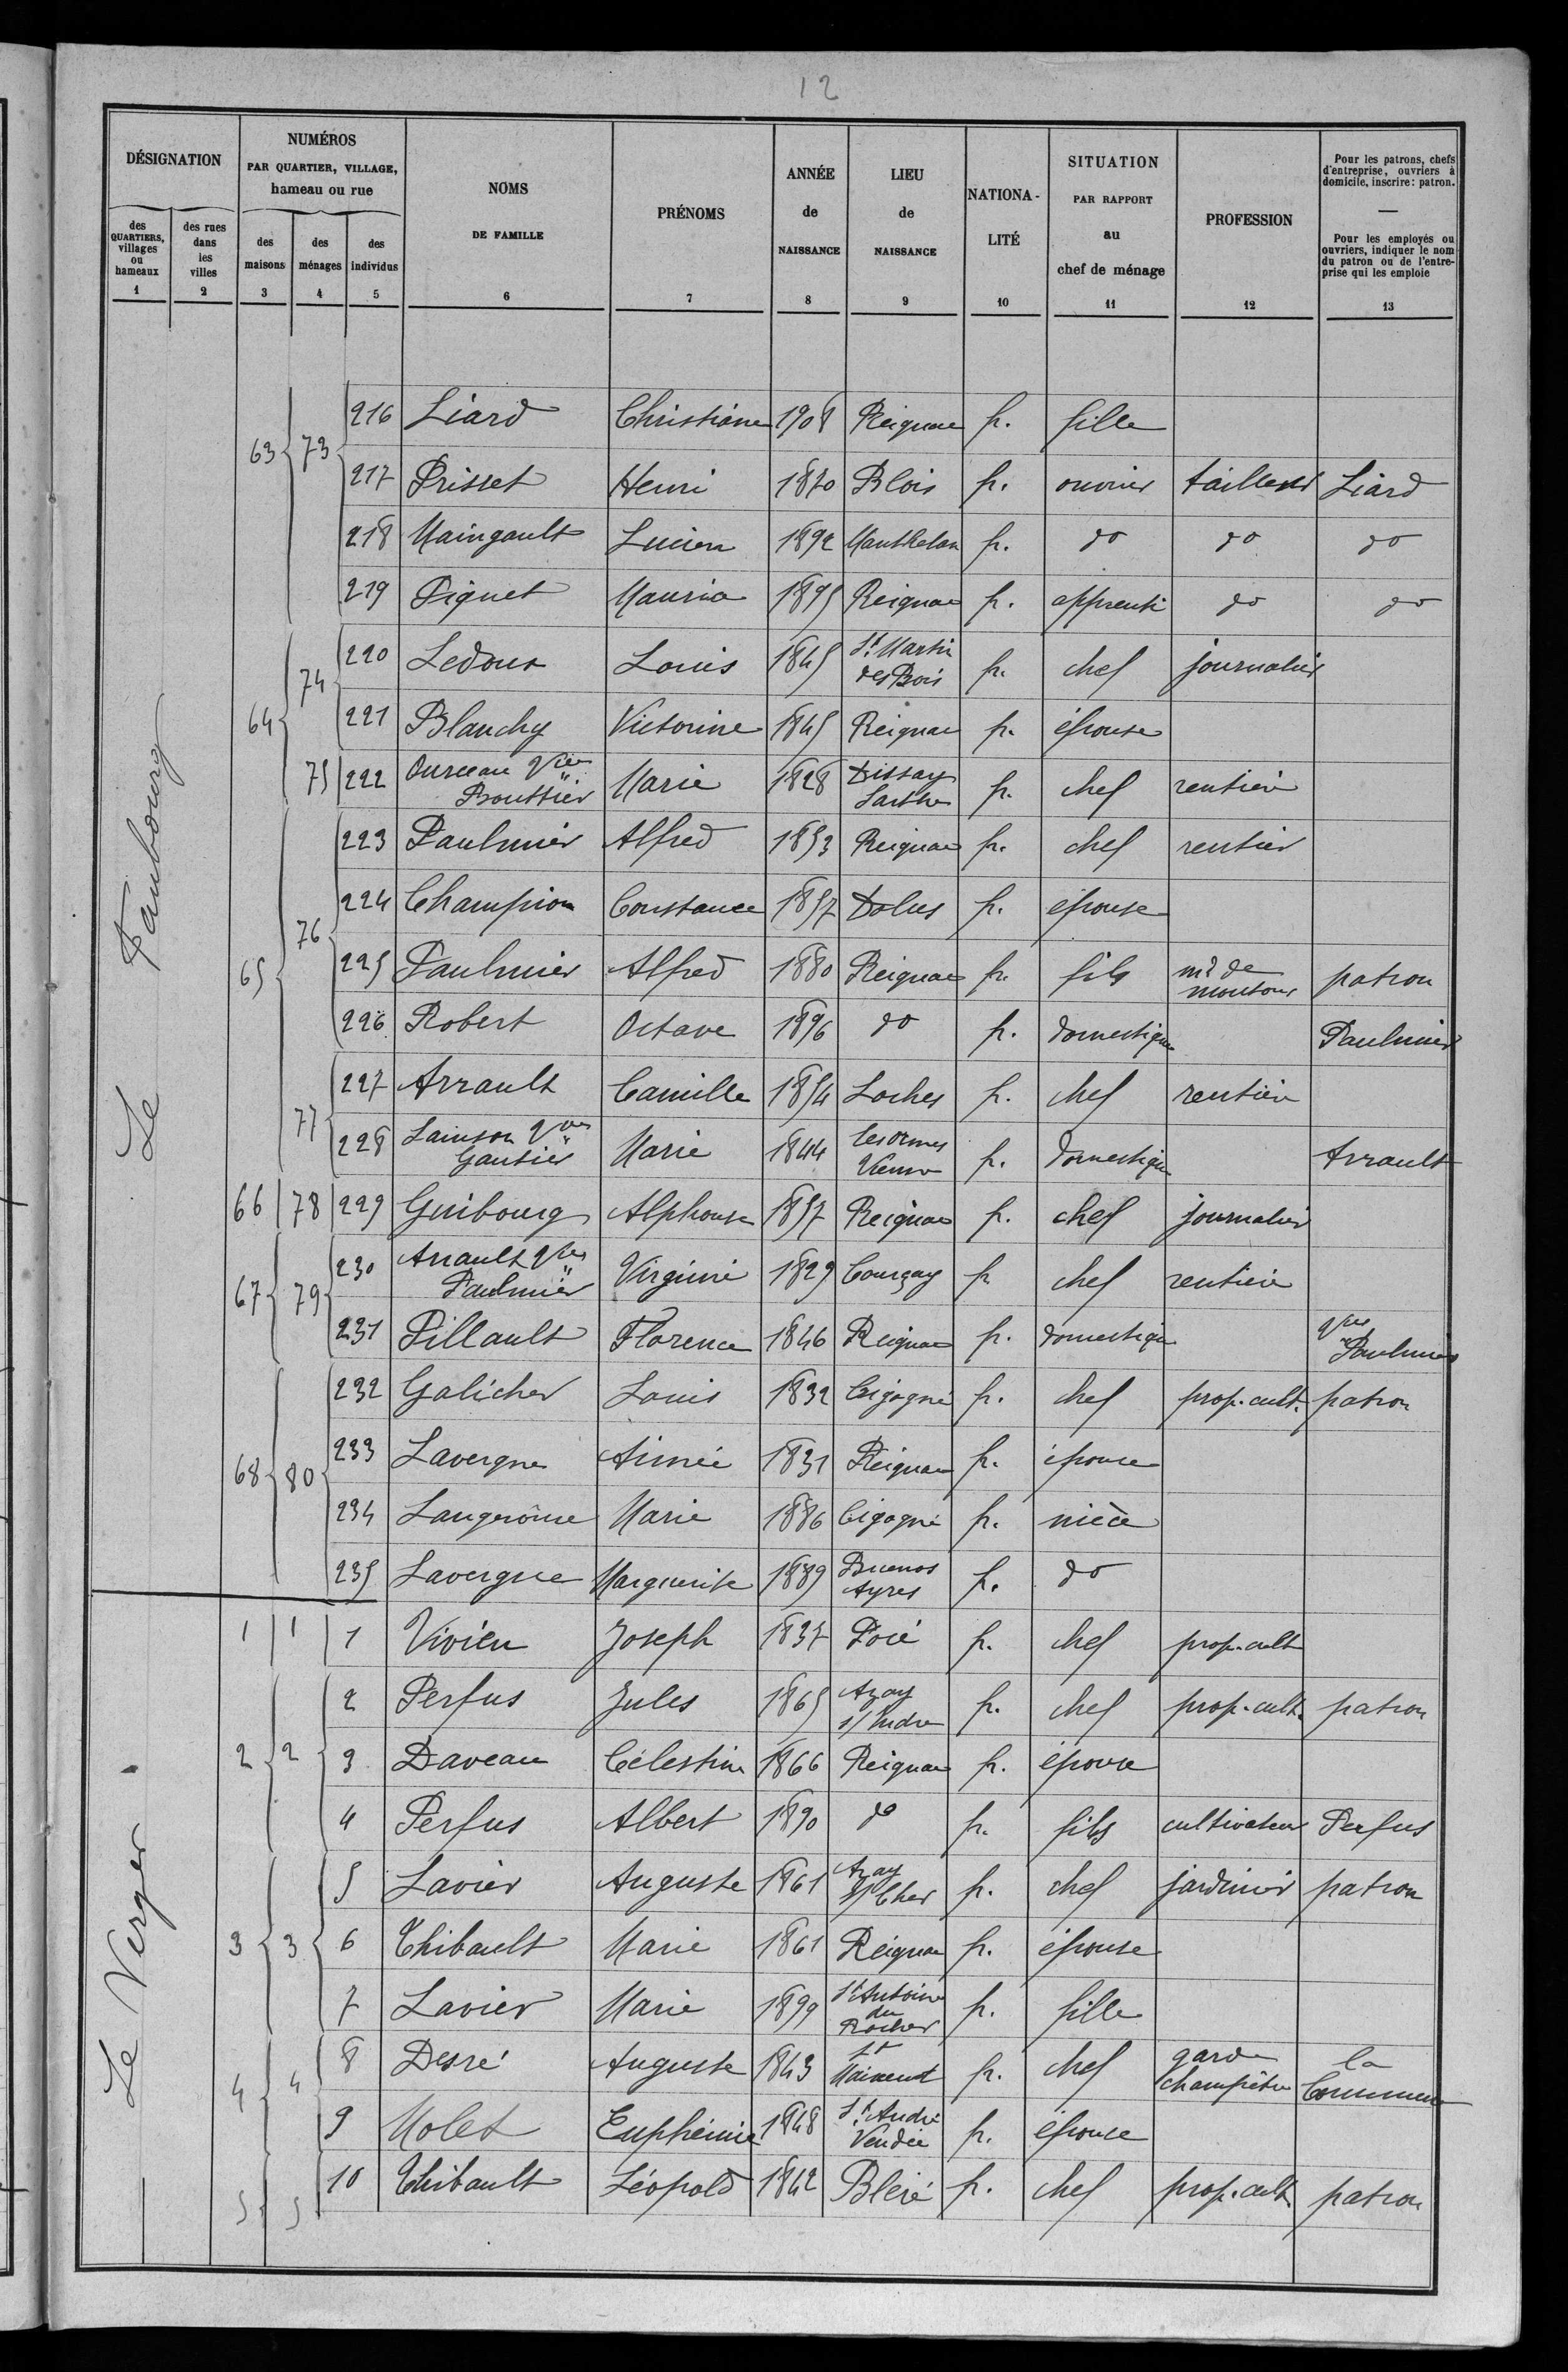 12
DÉSIGNATION
NUMÉROS
PAR QUARTIER, VILLAGE,
hameau ou rue
NOMS
DE FAMILLE
PRÉNOMS
ANNÉE
de
NAISSANCE
LIEU
de
NAISSANCE
NATIONA-
LITÉ
SITUATION
PAR RAPPORT
au
chef de ménage
PROFESSION
Pour les patrons, chefs
d'entreprise, ouvriers à
domicile, inscrire: patron.
—
Pour les employés ou
ouvriers, indiquer le nom
du patron ou de l'entre-
prise qui les emploie
des
QUARTIERS,
villages
ou
hameaux
des rues
dans
les
villes
des
maisons
des
ménages
des
individus
1 2 3 4 5 6 7 8 9 10 11 12 13
Le Faubourg
63 73 216 Liard Christiane 1908 Reignac fr. fille
217 Prisset Henri 1870 Blois fr. ouvrier tailleur Liard
218 Maingault Lucien 1892 Manthelan fr. do do do
219 Piquet Maurice 1895 Reignac fr. apprenti do do
64 74 220 Ledoux Louis 1845 St Martin
des Bois fr. chef journalier
221 Blanchy Victorine 1845 Reignac fr. épouse
75 222 Ourceau Vve
Bouttier Marie 1828 Dissay
Sarthe fr. chef rentière
65 76 223 Paulmier Alfred 1853 Reignac fr. chef rentier
224 Champion Constance 1857 Dolus fr. épouse
225 Paulmier Alfred 1880 Reignac fr. fils md de
moutons patron
226 Robert Octave 1896 do fr. domestique Paulmier
77 227 Arrault Camille 1854 Loches fr. chef rentière
228 Lainson Vve
Gautier Marie 1844 les Ormes
Vienne fr. domestique Arrault
66 78 229 Guibourg Alphonse 1857 Reignac fr. chef journalier
67 79 230 Arrault Vve
Paulmier Virginie 1829 Courçay fr chef rentière
231 Pillault Florence 1846 Reignac fr. domestique Vve
Paulmier
68 80 232 Galicher Louis 1832 Cigogné fr. chef prop. cult. patron
233 Lavergne Aimée 1831 Reignac fr. épouse
234 Laugerôme Marie 1886 Cigogné fr. nièce
235 Lavergne Marguerite 1889 Buenos
Ayres fr. do
Le Verger
1 1 1 Vivien Joseph 1837 Pocé fr. chef prop. cult
2 2 2 Perfus Jules 1865 Azay
s/ Indre fr. chef prop. cult. patron
3 Daveau Célestine 1866 Reignac fr. épouse
4 Perfus Albert 1890 do fr. fils cultivateur Perfus
3 3 5 Lavier Auguste 1861 Azay
s/ Cher fr. chef jardinier patron
6 Thibault Marie 1861 Reignac fr. épouse
7 Lavier Marie 1899 St Antoine
du
Rocher fr. fille
4 4 8 Desré Auguste 1843 St
Maixent fr. chef garde
champêtre la
Commune
9 Molet Euphémie 1848 St André
Vendée fr. épouse
5 5 10 Thibault Léopold 1842 Bléré fr. chef prop. cult. patron